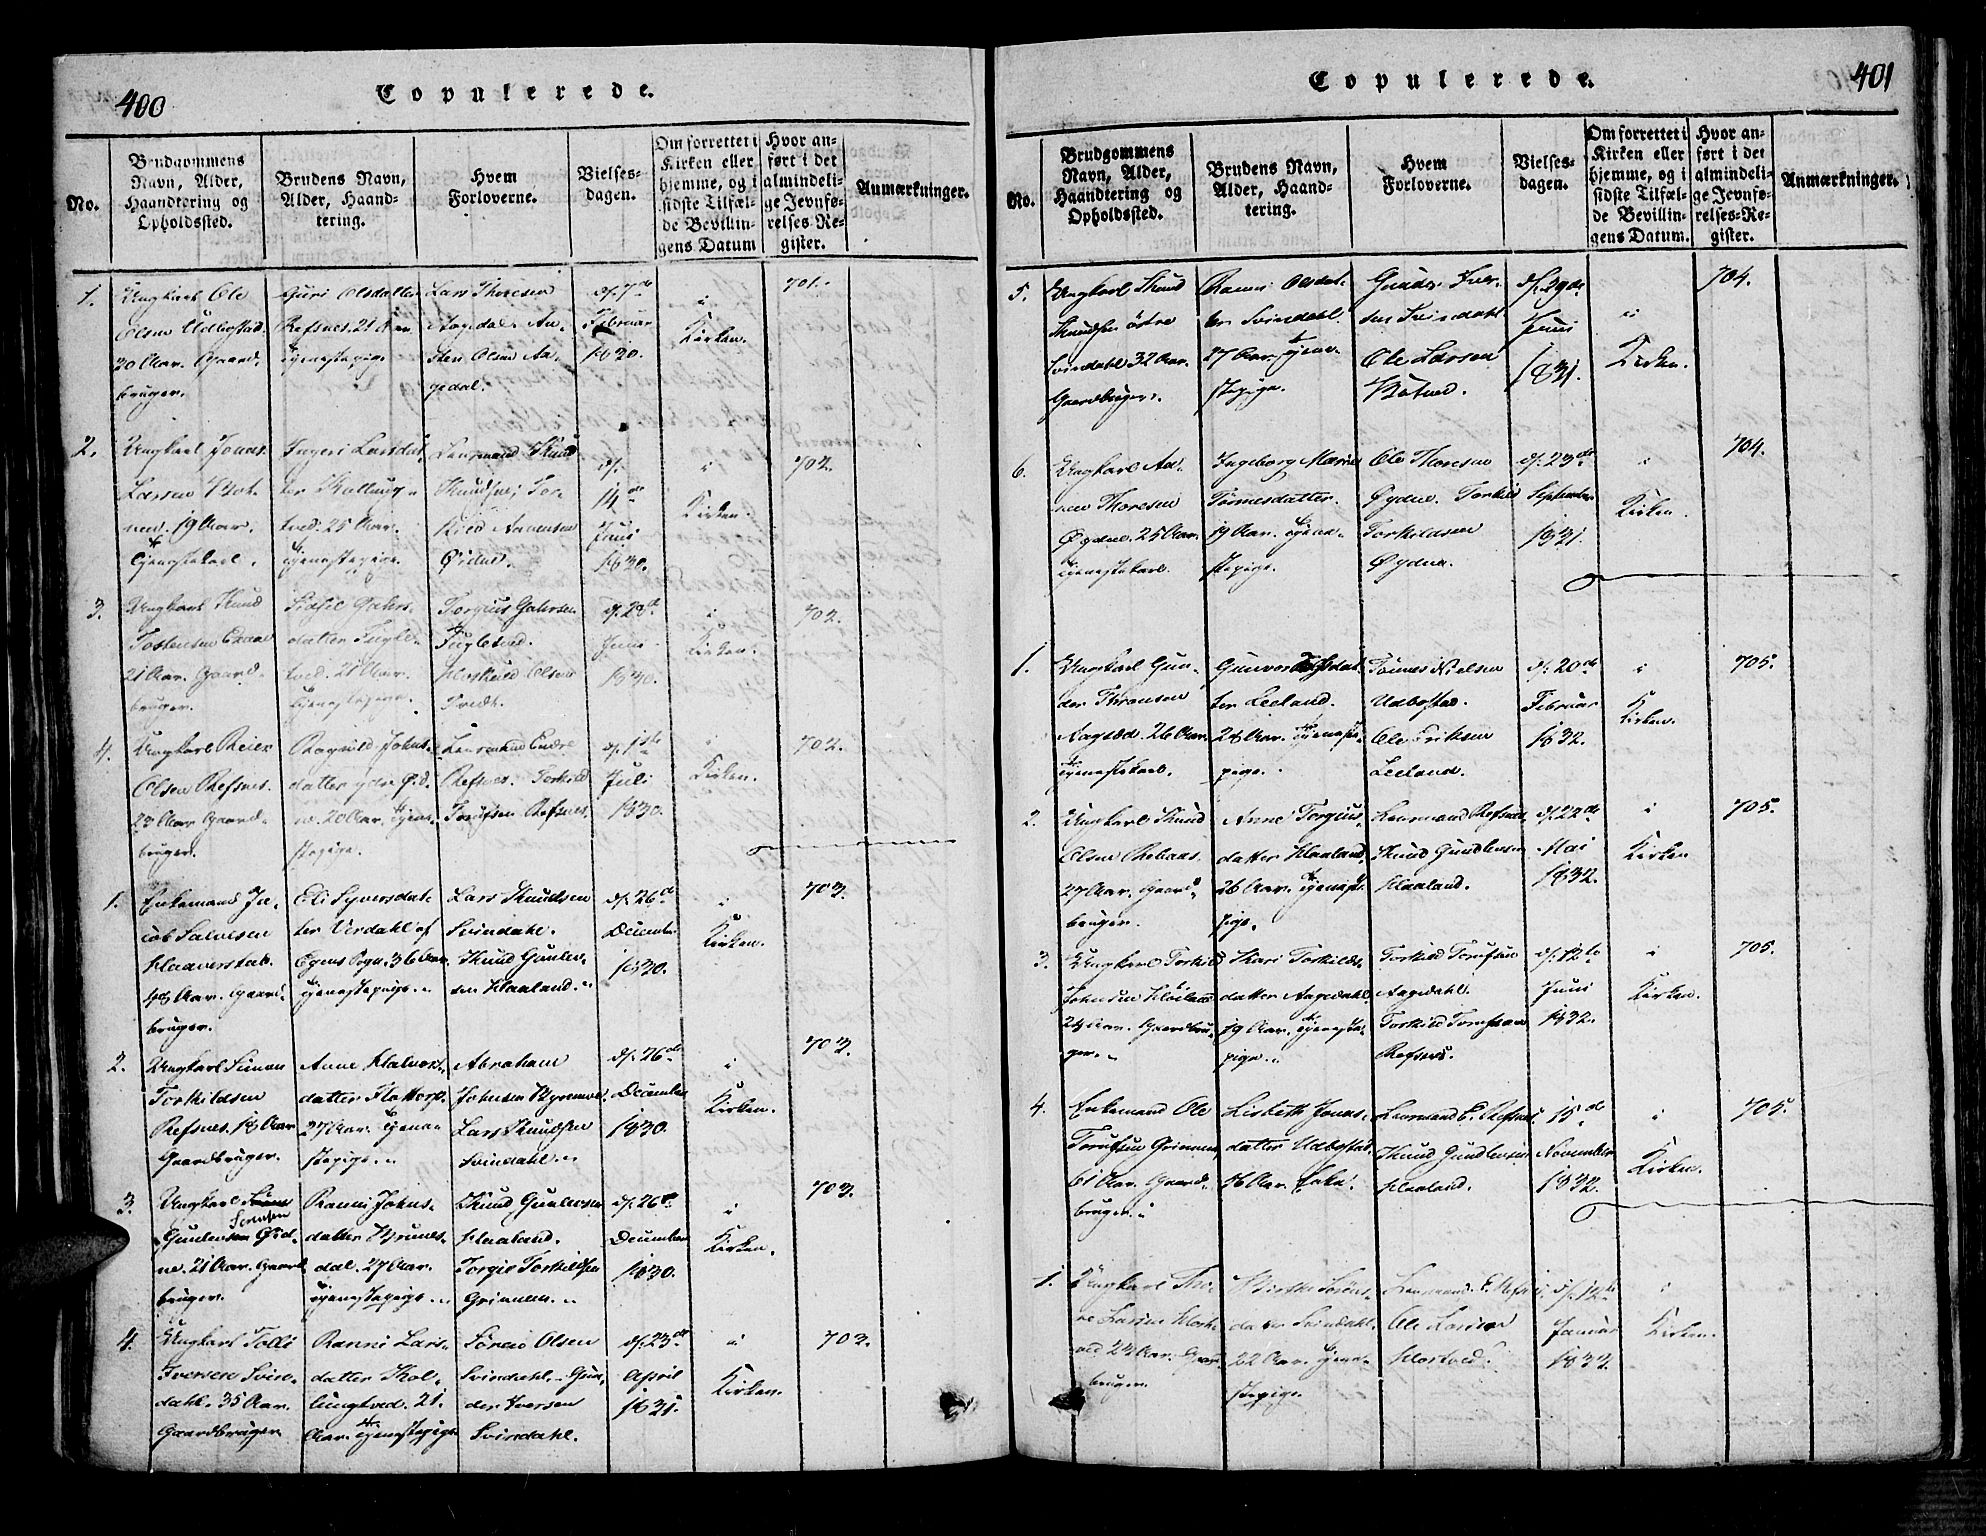 400
Copulerede.
No.
Brudgommens Navn, Alder, Haandtering og Opholdssted.
Brudens Navn, Alder, Haandtering.
Hvem Forloverne.
Vielsesdagen.
Om forrettet i Kirken eller hjemme, og i sidste Tilfælde Bevillingens Datum
Hvor anført i det almindelige Jevnførelses-Register.
Anmærkninger.
1.
Ungkarl Ole
Olsen Udbostad.
30 Aar. Gaard-
bruger.
Guri Olsdatter
Refsnes. 21 Aar
tjenestepige
Lars Thoresen
Aagedal. An-
sten Olsen Aa-
gedal.
d. 7de
Februar
1830.
i
Kirken.
701.
2.
Ungkarl Jonas
Larsen
19 Aar.
Tjenestekarl.
Ingeri Larsdat-
ter Kollung-
tved. 25 Aar.
tjenestepige.
Leensmand Knud
Knudsen, Tor-
kild Aanensen
Øidne.
d.
14de
Juni
1830.
i
Kirken.
702.
3.
Ungkarl Knud
Tostensen
21 Aar. Gaard-
bruger.
Sidsel Gahrs-
datter Fugle-
tved. 21 Aar.
tjenestepige.
Torgius Gahrsen
Fugletved.
Olsen
Tvedt.
d. 28de
Juni
1830.
i
Kirken.
702.
4.
Ungkarl Reier
Olsen Refsnes.
23 Aar Gaard-
bruger.
Ragnild Johns-
datter ydre Øid-
ne. 20 Aar. tjene-
stepige.
Leensmand Endre
Refsnes. Torkild
Torufsen Refsnes.
d. 1ste
Juli
1830.
i
Kirken.
702.
1.
Enkemand Ja-
cob Salvesen
Haaverstad.
48 Aar. Gaard-
bruger.
Eli Syversdat-
ter Verdahl af
Egens Sogn. 36 Aar
tjenestepige.
Lars Knudsen
Svindahl.
Knud Gunlev-
sen Haaland.
d. 26de
December
1830.
i
Kirken.
703.
2.
Ungkarl Simon
Torkildsen
Refsnes. 18 Aar
Gaardbruger.
Anne Halvors-
datter Flottorp.
27 Aar. tjene-
stepige.
Abraham
Johnsen
Lars Knudsen
Svindahl.
d. 26de
December
1830.
i
Kirken.
703.
3.
Ungkarl
Sørensen
Gunlevsen Øid-
ne. 21 Aar. Gaard
bruger.
Ranni Johns-
datter
dal. 27 Aar.
tjenestepige.
Knud Gunlevsen
Haaland.
Torgie Torkildsen
Grimmen.
d. 26de
December
1830.
i
Kirken.
703.
4.
Ungkarl Tolli
Iversen Svin-
dahl. 35 Aar.
Gaardbruger
Ranni Lars-
datter Kol-
lungtved. 21.
Aar. tjenestepige
Søren Olsen
Svindahl. Gun-
der Iversen
Svindahl.
d. 23de
April
1831.
i
Kirken.
703.
401
Copulerede.
No.
Brudgommens Navn, Alder, Haandtering og Opholdssted.
Brudens Navn, Alder, Haandtering.
Hvem Forloverne.
Vielsesdagen.
Om forrettet i Kirken eller hjemme, og i sidste Tilfælde Bevillingens Datum.
Hvor anført i det almindelige Jevnførelses-Register.
Anmærkninger.
5.
Ungkarl Knud
Knudsen østre
Svindahl 32 Aar.
Gaardbruger.
Ranni Olsdat-
ter Svindahl.
27 Aar. tjene-
stepige.
Gunder Iver-
sen Svindahl
Ole Larsen
d. 29de
Juni
1831.
i
Kirken.
704.
6.
Ungkarl Aa-
nen Thoresen
Øydne. 25 Aar.
tjenestekarl.
Ingeborg Marie
Tønnesdatter
19 Aar. tjene-
stepige.
Ole Thoresen
Øydne. Torkild
Torkildsen
Øydne.
d. 23de
September
1831.
i
Kirken.
704.
1.
Ungkarl Gun-
der Thronsen
26 Aar.
tjenestekarl.
Gunvor
ter Leeland.
24 Aar. tjeneste-
pige.
Tønnes Nielsen
Udbostad.
Ole Eriksen
Leeland.
d. 20de
Februar
1832.
i
Kirken.
705.
2.
Ungkarl Knud
Olsen
27 Aar. Gaard-
bruger.
Anne Torgius-
datter Haaland,
26 Aar. tjeneste-
pige.
Leensmand Refsnes
Knud Gundlevsen
Haaland.
d. 22de
Mai
1832.
i
Kirken
705.
3.
Ungkarl Torkild
Johnsen
24 Aar. Gaardbru-
ger.
Kari Torkilds-
datter Aagedahl.
19 Aar. tjeneste-
pige.
Torkild Torufsen
Aagedahl.
Torkild Torufsen
Refsnes.
d. 12te
Juni
1832.
i
Kirken.
705.
4.
Enkemand Ole
Torufsen Grimmen,
61 Aar. Gaard-
bruger.
Lisbeth Jonas-
datter Udbostad.
56 Aar. Enke.
Leensmand E. Refsnes.
Knud Gundlevsen
Haaland.
15de
November
1832.
i
Kirken.
705.
1.
Ungkarl Tho-
re Larsen
24 Aar.
bruger.
Birthe Sørens-
datter Svindahl.
22 Aar. tjene-
stepige.
Leensmand. E. Refsnes.
Ole Larsen
d. 12te
Januar
1833.
i
Kirken.